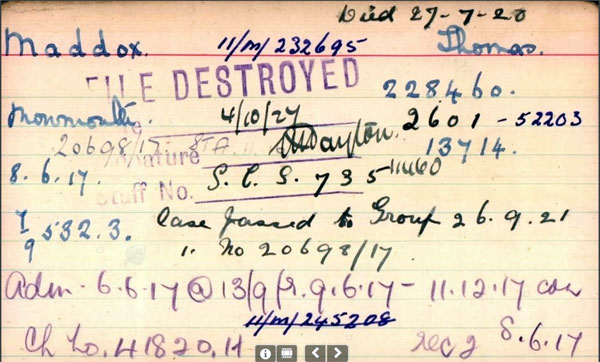 Died 27-7-20
Maddox. 11/M/232695 Thomas.
FILE DESTROYED
228460.
Monmouth. 4/10/27 2601 - 52203
20698/17. Signature 13714.
8.6.17. Staff No. S.C.S. 735 11460
532.3. Case passed to Group 26.9.21
No 20698/17.
Adm. 6.6.17 @ 13/9 9.6.17 - 11.12.17
11/M/245208
41820.H 8.6.17